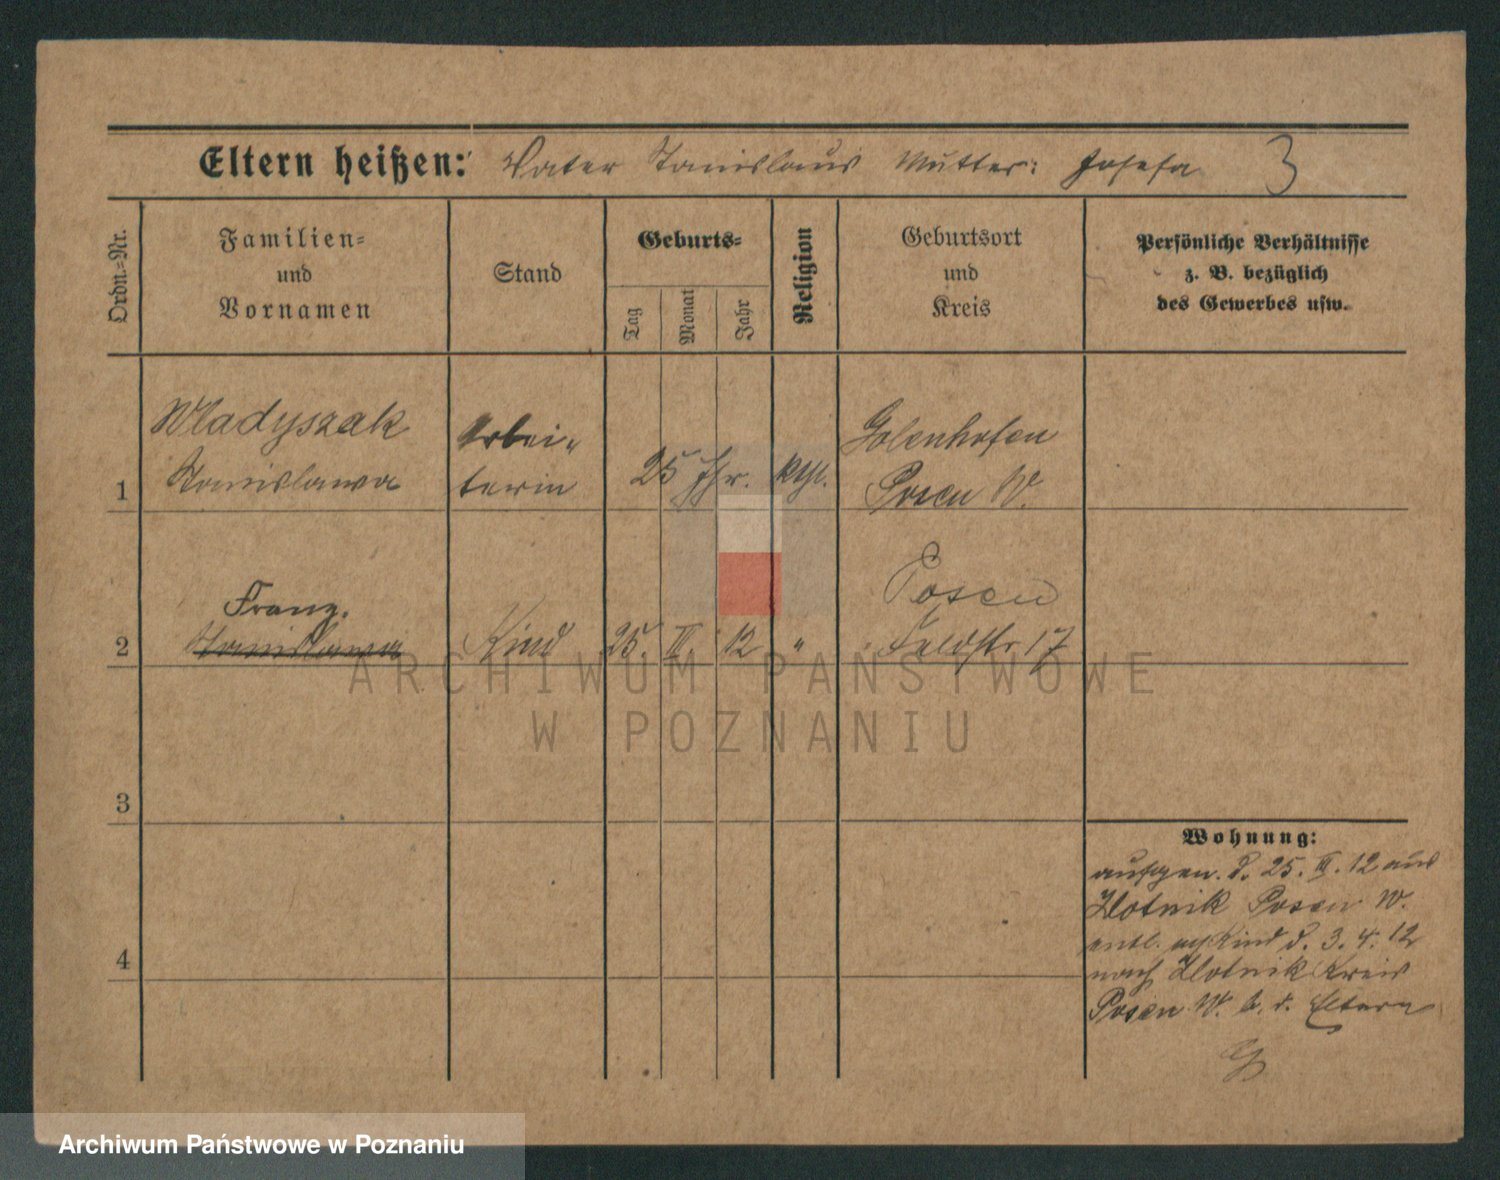 Eltern heißen: Vater Stanislaus Mutter: Josefa 3
Ordn.-Nr.
Familien-
und
Vornamen
Stand
Geburts-
Tag
Monat
Jahr
Religion
Geburtsort
und
Kreis
Persönliche Verhältnisse
z. B. bezüglich
des Gewerbes usw.
Wladyszak Arbei- Golenhofen
1 Stanislawa terin 25 Jhr. kth. Posen W.
Franz. Posen
2 Stanislawa Kind 25. III. 12 " Feldstr 17
3
Wohnung:
aufgen. d. 25. III. 12 aus
Zlotnik Posen W.
entl. Kind d. 3. 4. 12
4
nach Zlotnik Kreis
Posen W. z. d. Eltern
ARCHIWUM PAŃSTWOWE
W POZNANIU
Archiwum Państwowe w Poznaniu